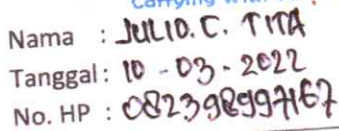 Nama : JULIO. C. TITA
Tanggal : 10 - 03 - 2022
No. HP : 082398997167